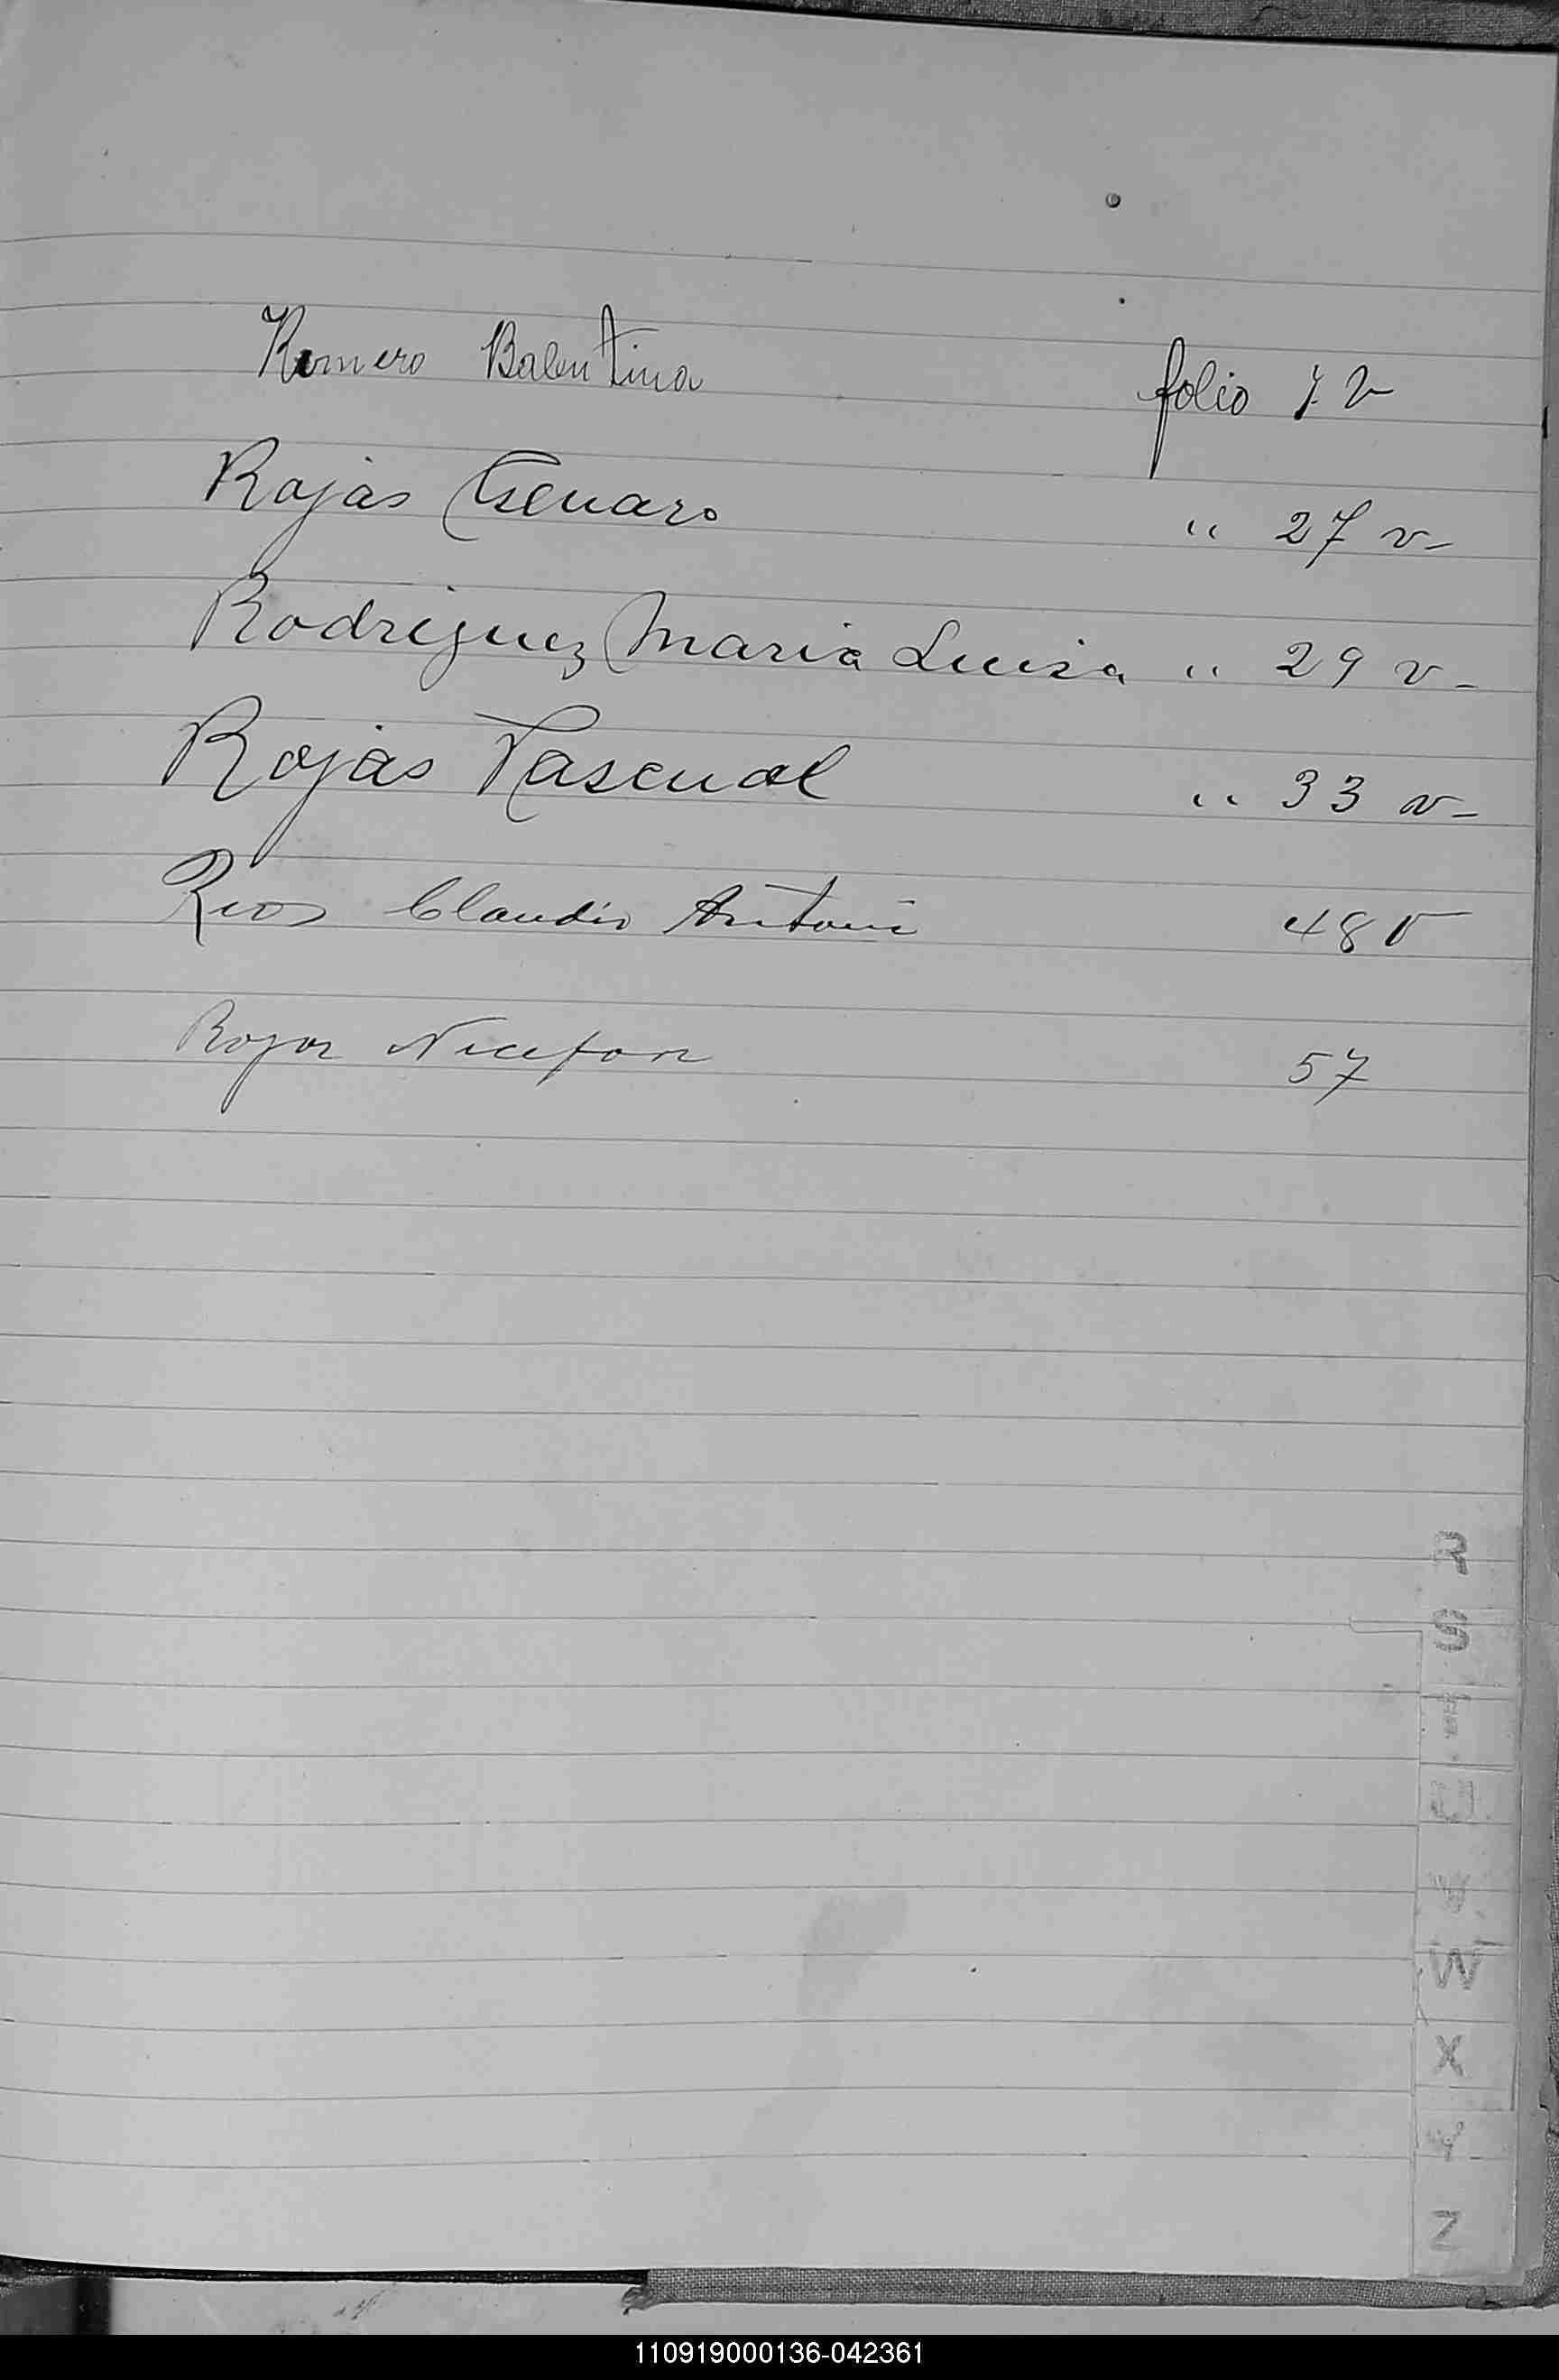 Romero Balentina folio 7 v
Rojas Genaro " 27 v-
Rodriguez Maria Luisa " 29 v-
Rojas Pascual " 33 v-
Rios Claudio Antoni 48 v
Rojas Nicefor 57
R
S
T
U
V
W
X
Y
Z
110919000136-042361